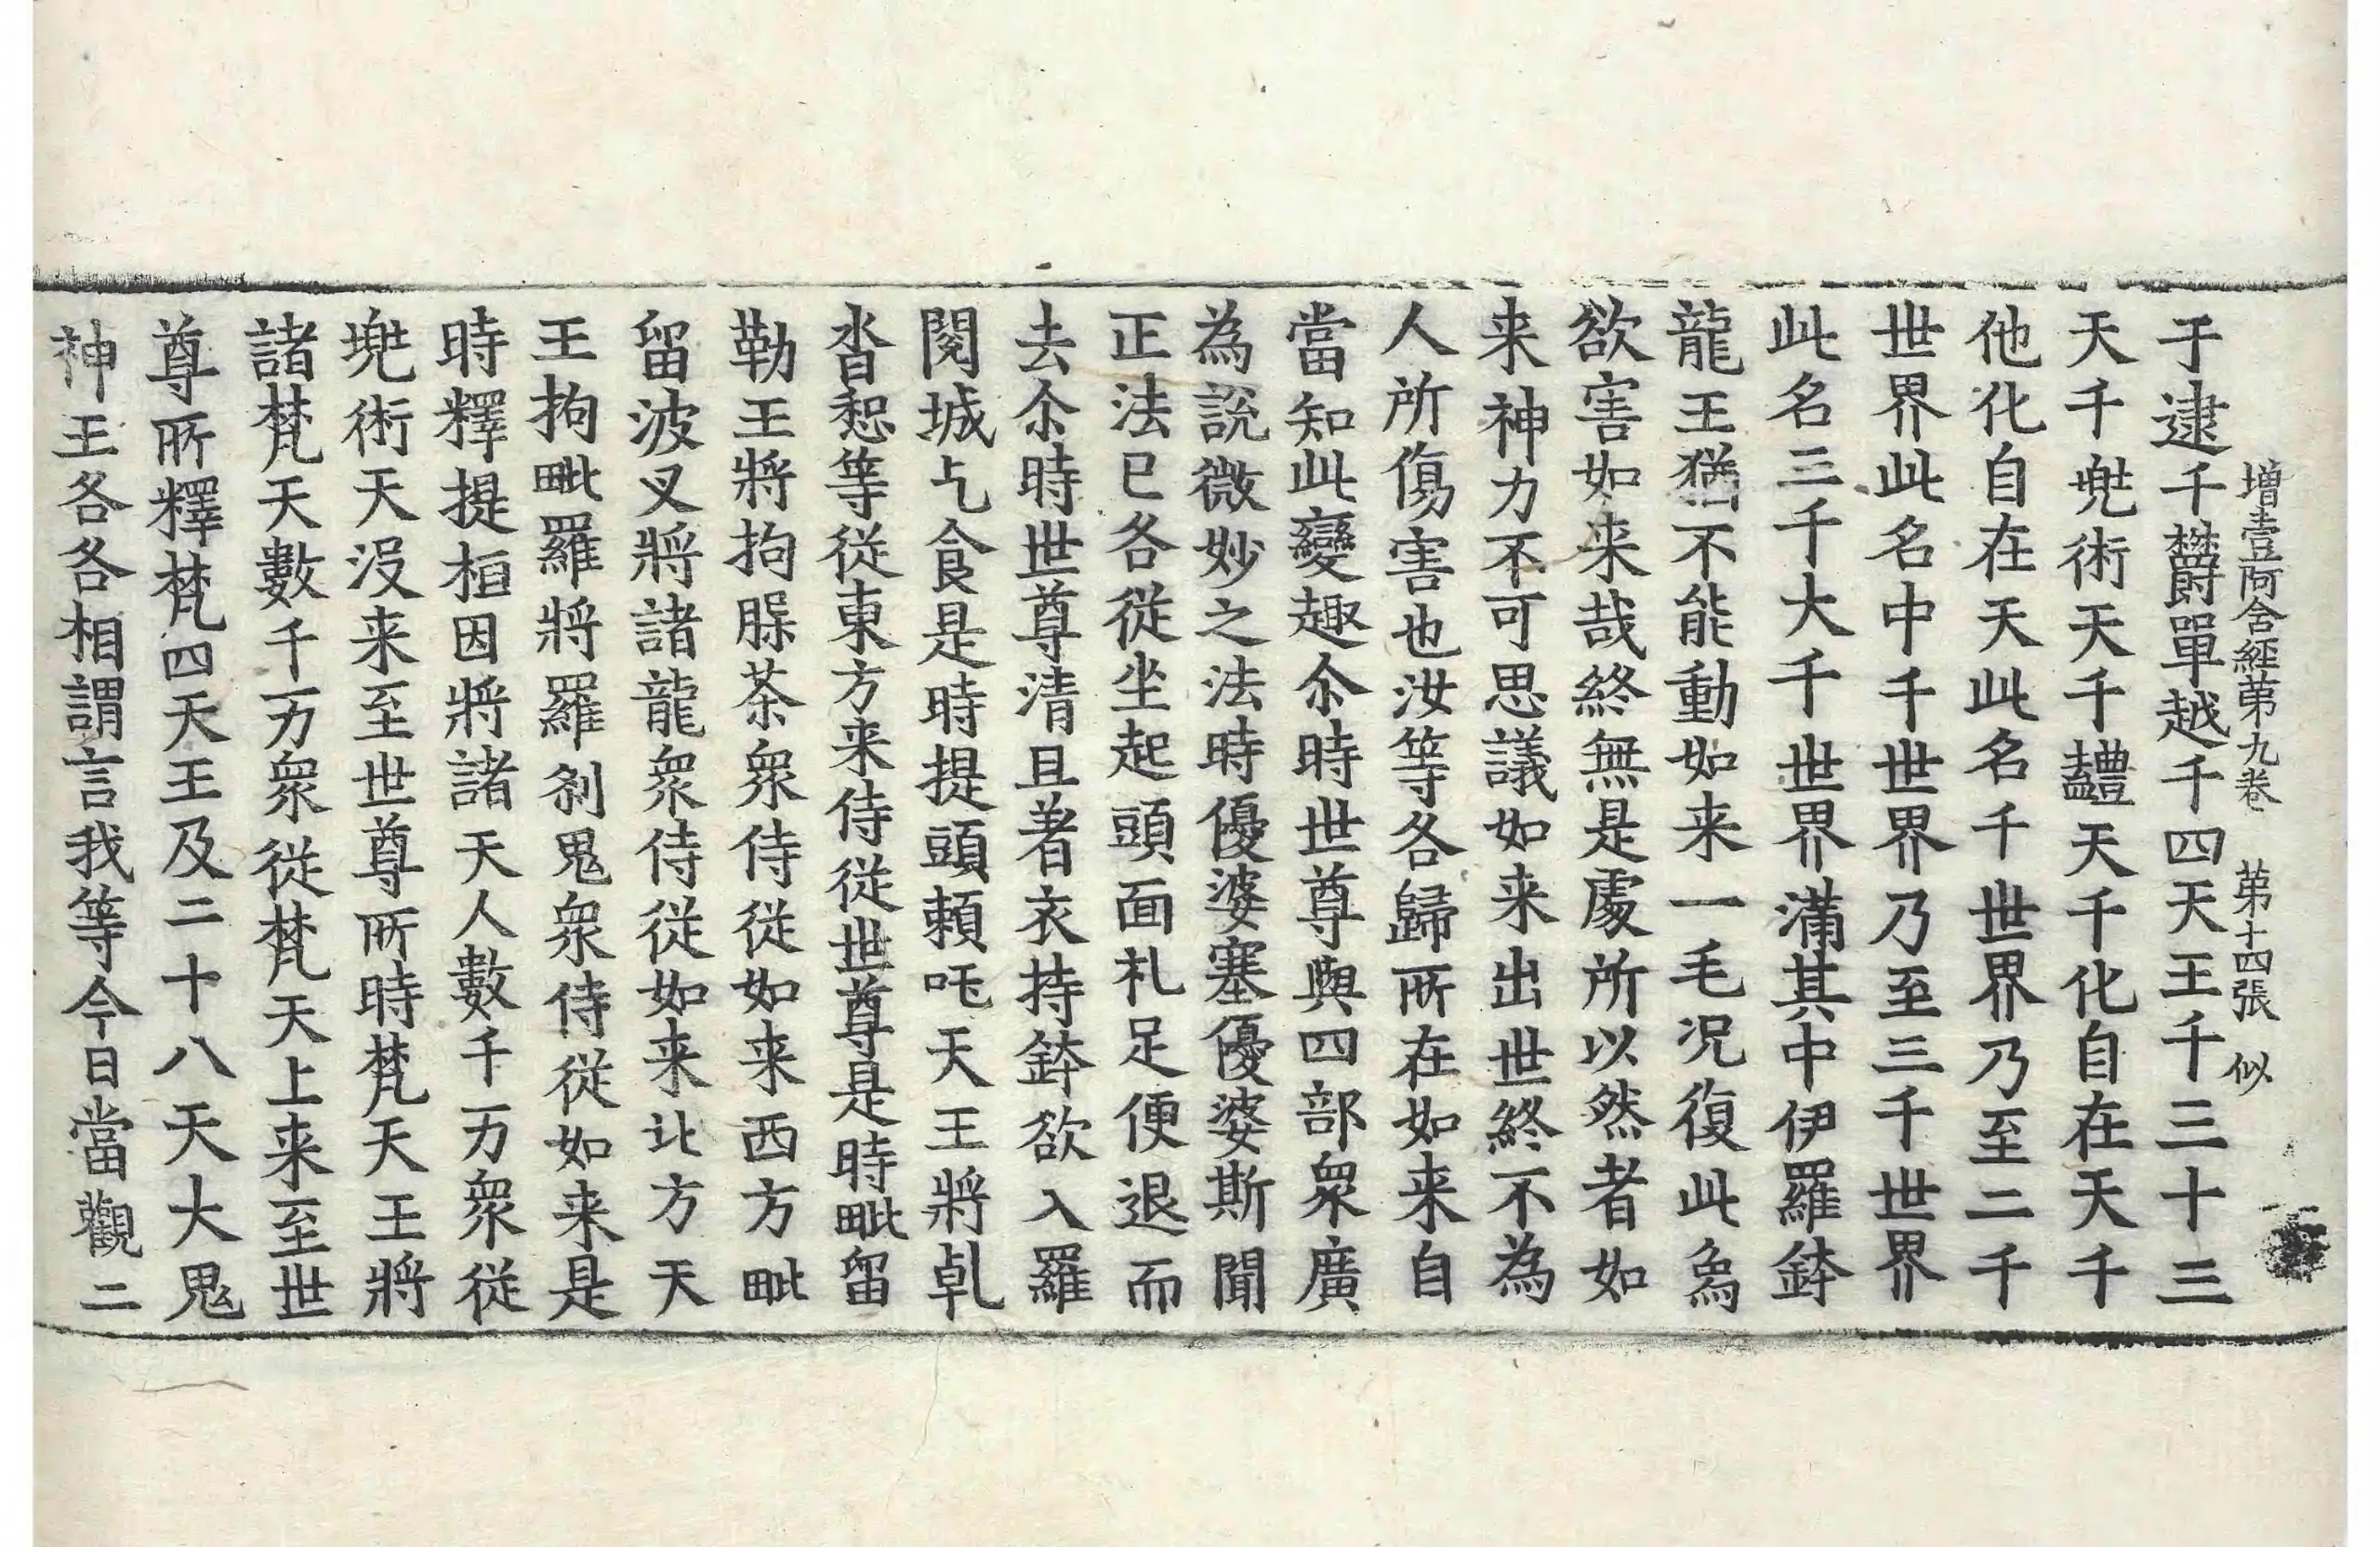 增壹阿含經第九卷 第十四張 似
于逮千欝單越千四天王千三十三
天千兠術天千豔天千化自在天千
他化自在天此名千世界乃至二千
世界此名中千世界乃至三千世界
此名三千大千世界滿其中伊羅鉢
龍王猶不能動如来一毛況復此烏
欲害如来哉終無是處所以然者如
来神力不可思議如来出世終不為
人所傷害也汝等各歸所在如来自
當知此變趣尒時世尊與四部衆廣
為說微妙之法時優婆塞優婆斯聞
正法已各從坐起頭面礼足便退而
去尒時世尊清旦著衣持鉢欲入羅
閱城乞食是時提頭頼吒天王將乹
沓惒等從東方来侍從世尊是時毗留
勒王將拘䐬茶衆侍從如来西方毗
留波叉將諸龍衆侍從如来北方天
王拘毗羅將羅刹鬼衆侍從如来是
時釋提桓因將諸天人數千万衆從
兠術天沒来至世尊所時梵天王將
諸梵天數千万衆從梵天上来至世
尊所釋梵四天王及二十八天大鬼
神王各各相謂言我等今日當觀二